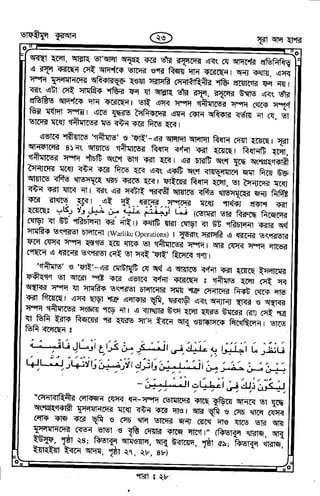 তাফহীমুল কুরআন
২৩
সূরা আল হাশর
অবস্থা হলো, আল্লাহ তা'আলা অনুগ্রহ করে তাঁর রসূলদের এবং যে আদর্শের প্রতিনিধিত্ব
এ রসূল করছেন সেই আদর্শকে তাদের ওপর বিজয় দান করেছেন। অন্য কথায়, এসব
সম্পদ মুসলমানদের অধিকারভুক্ত হওয়া সরাসরি সেনাবাহিনীর শক্তি প্রয়োগের ফল নয়।
এবং এটা সেই সামগ্রিক শক্তির ফল যা আল্লাহ তাঁর রসূল, রসূলের উম্মাত এবং তাঁর
প্রতিষ্ঠিত আদর্শকে দান করেছেন। তাই এসব সম্পদ গনীমাতের সম্পদ থেকে সম্পূর্ণ
ভিন্ন মর্যাদা সম্পন্ন। এতে যুদ্ধরত সৈনিকদের এমন কোন অধিকার বর্তায় না যে, তা
তাদের মধ্যে গনীমাতের মত বন্টন করে দিতে হবে।
এভাবে শরীয়াতে 'গনীমাত' ও 'ফাই'-এর আলাদা আলাদা বিধান দেয়া হয়েছে। সূরা
আনফালের ৪১নং আয়াতে গনীমাতের বিধান বর্ণনা করা হয়েছে। বিধানটি হলো,
গনীমাতের সম্পদ পাঁচটি অংশে ভাগ করা হবে। এর চারটি অংশ যুদ্ধে অংশগ্রহণকারী
সৈন্যদের মধ্যে বন্টন করে দিতে হবে
আয়াতে বর্ণিত খাতসমূহে ব্যয় করতে হবে। ফাইয়ের বিধান হলো, তা সৈন্যদের মধ্যে
বন্টন করা যাবে না। বরং এর সবটাই পরবর্তী আয়াতে বর্ণিত খাতসমূহের জন্য নির্দিষ্ট
করে রাখতে হবে। এই দুই ধরনের সম্পদের মধ্যে পার্থক্য প্রকাশ করা
হয়েছেঃ فما اوجفتم عليه من خيل ولا ركاب (তোমরা তার বিরুদ্ধে নিজেদের
ঘোড়া বা উট পরিচালনা কর নাই।) কথাটি দ্বারা ঘোড়া বা উট পরিচালনা করার অর্থ
সামরিক তৎপরতা চালানো (Warlike Operations) । সুতরাং সরাসরি এ ধরনের তৎপরতার
ফলে যেসব সম্পদ হস্তগত হয়ে থাকে তা গনীমাতের সম্পদ। আর যেসব সম্পদ লাভের
পেছনে এ ধরনের তৎপরতা নেই তা সবই 'ফাই' হিসেবে গণ্য।
'গনীমাত' ও 'ফাই'-এর মোটামুটি যে অর্থ এ আয়াতে বর্ণনা করা হয়েছে ইসলামের
ফকীহগণ তা আরো স্পষ্ট করে এভাবে বর্ণনা করেছেনঃ গনীমাত হলো সেই সব
অস্থাবর সম্পদ যা সামরিক তৎপরতা চালানোর সময় শত্রু সেনাদের নিকট থেকে লাভ
করা গিয়েছে। এসব ছাড়া শত্রু এলাকার ভূমি, ঘরবাড়ী এবং অন্যান্য স্থাবর ও অস্থাবর
সম্পদ গনীমাতের সংজ্ঞায় পড়ে না। এ ব্যাখ্যার উৎস হলো হযরত উমরের (রা) সেই পত্র
যা তিনি ইরাক বিজয়ের পর হযরত সা'দ ইবনে আবু ওয়াক্কাসকে লিখেছিলেন। তাতে
তিনি বলেছেনঃ
فانظر ما اجلبوا به عليك فى العسكر من كراع او مال فاقسمه
بين من حضر من المسلمين واترك الارضين والانهار لعمالها
ليكون ذلك فى اعطيات المسلمين -
"সেনাবাহিনীর লোকজন যেসব ধন-সম্পদ তোমাদের কাছে কুড়িয়ে আনবে তা যুদ্ধে
অংশগ্রহণকারী মুসলমানদের মধ্যে বন্টন করে দাও। আর ভূমি ও সেচ খালে যেসব
লোক কাজ করে ঐ ভূমি ও সেচ খাল তাদের জন্য রেখে দাও যাতে তার আয়
মুসলমানদের বেতন ভাতা ও বৃত্তি দেয়ার কাজে লাগে।" (কিতাবুল খারাজ, আবু
ইউসুফ, পৃষ্ঠা ২৪; কিতাবুল আমওয়াল, আবু উবায়েদ, পৃষ্ঠা ৫৯; কিতাবুল খারাজ,
ইয়াহইয়া ইবনে আদম, পৃষ্ঠা ২৭, ২৮, ৪৮)
পারা ঃ ২৮